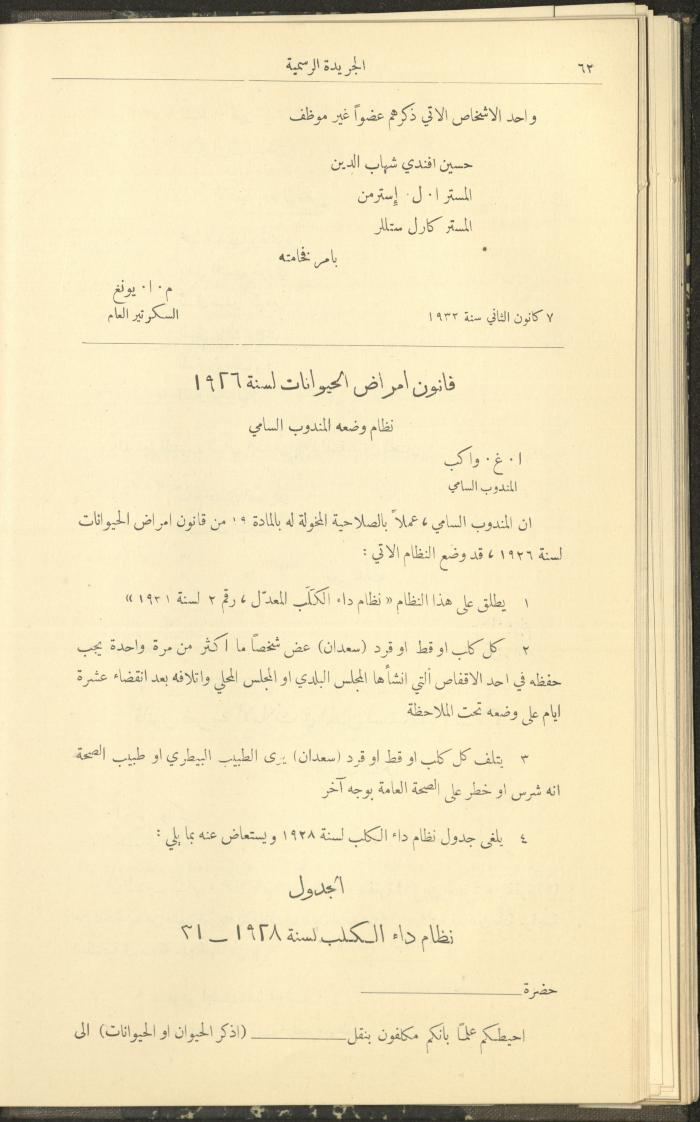 ٦٢ الجريدة الرسمية
واحد الاشخاص الاتي ذكرهم عضواً غير موظف
حسين افندي شهاب الدين
المستر ا٠ ل٠ إسترمن
المستر كارل ستللر
بامر فخامته
م٠ ا٠ يونغ
٧ كانون الثاني سنة ١٩٣٢ السكرتير العام
قانون امراض الحيوانات لسنة ١٩٢٦
نظام وضعه المندوب السامي
ا٠ غ٠ واكب
المندوب السامي
ان المندوب السامي ، عملاً بالصلاحية المخولة له بالمادة ١٩ من قانون امراض الحيوانات
لسنة ١٩٢٦ ، قد وضع النظام الاتي :
١ يطلق على هذا النظام « نظام داء الكَلَب المعدّل ، رقم ٢ لسنة ١٩٣١ »
٢ كل كلب او قط او قرد (سعدان) عض شخصاً ما اكثر من مرة واحدة يجب
حفظه في احد الاقفاص ألتي انشأها المجلس البلدي او المجلس المحلي واتلافه بعد انقضاء عشرة
ايام على وضعه تحت الملاحظة
٣ يتلف كل كلب او قط او قرد (سعدان) يرى الطبيب البيطري او طبيب الصحة
انه شرس او خطر على الصحة العامة بوجه آخر
٤ يلغى جدول نظام داء الكلب لسنة ١٩٢٨ ويستعاض عنه بما يلي :
الجدول
نظام داء الكلب لسنة ١٩٢٨ - ٣١
حضرة
احيطكم علماً بأنكم مكلفون بنقل (اذكر الحيوان او الحيوانات) الى